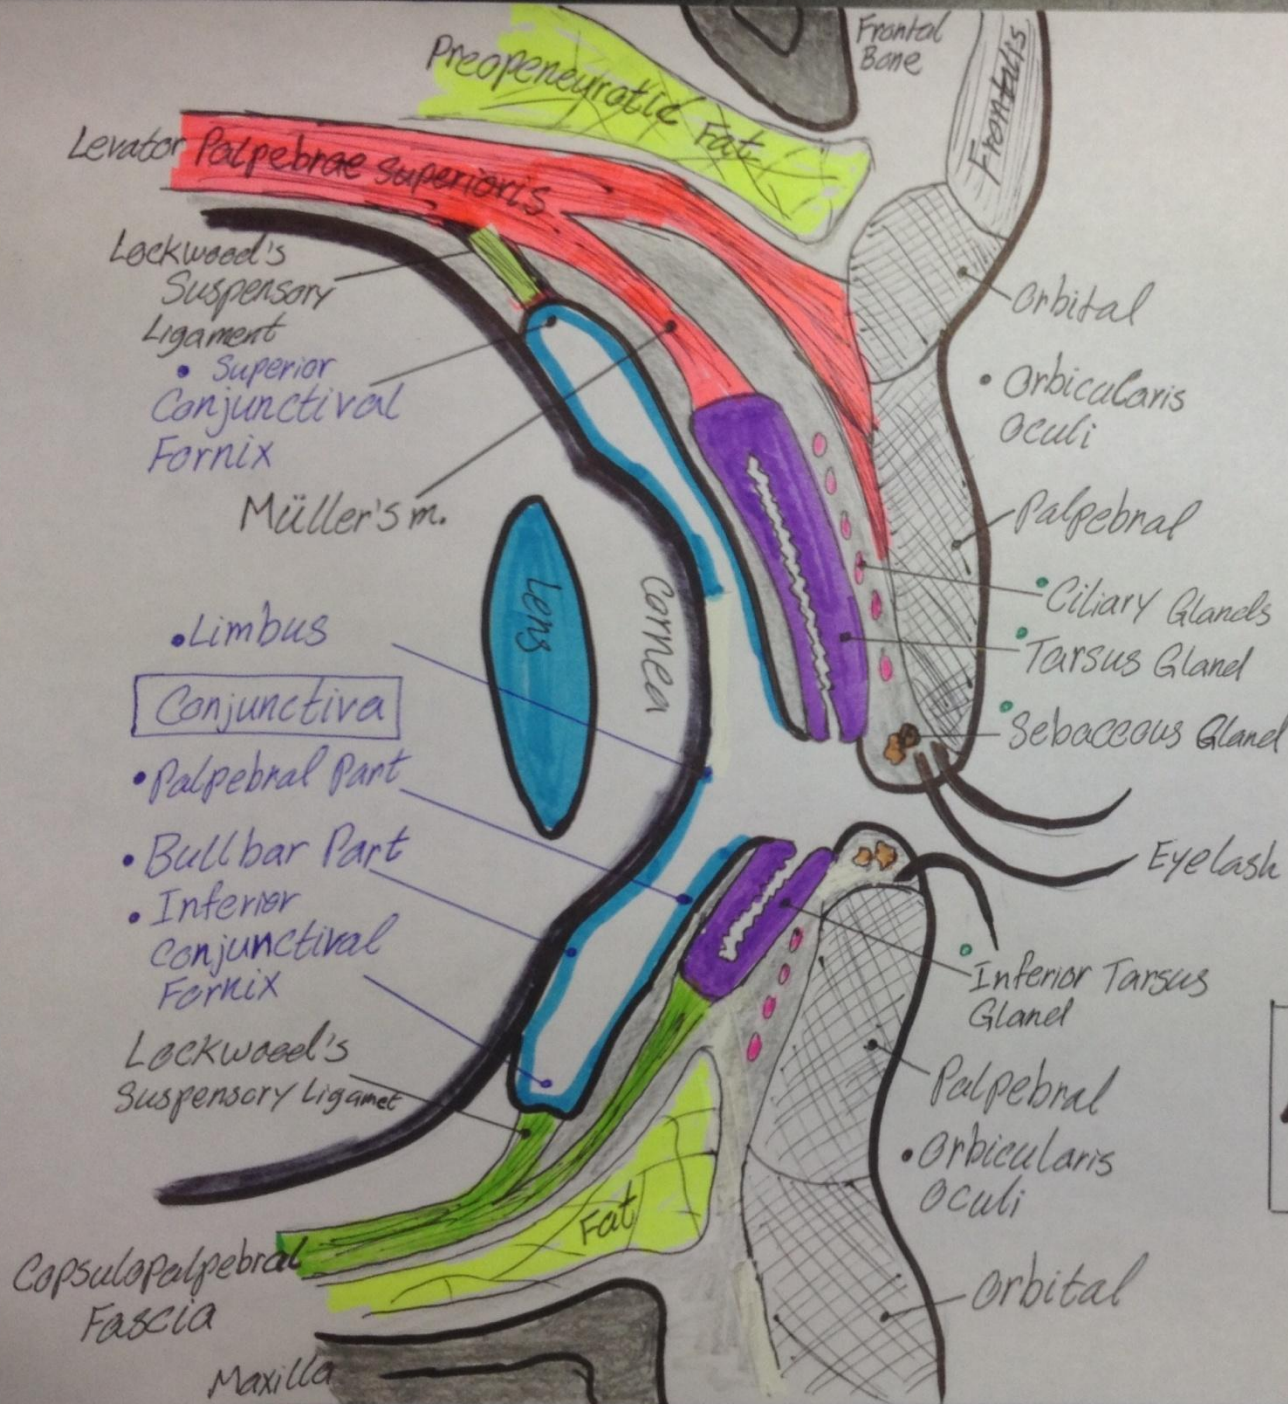 Frontal
Bone
Frontalis
Preopeneurotic Fat
Levator Palpebrae Superioris
Lockwood's
Suspensory
Ligament
• Superior
Conjunctival
Fornix
Müller's m.
Orbital
• Orbicularis
Oculi
Palpebral
• Ciliary Glands
• Tarsus Gland
• Sebaceous Gland
Eyelash
Lens
Cornea
• Limbus
Conjunctiva
• Palpebral Part
• Bullbar Part
• Inferior
Conjunctival
Fornix
Lockwood's
Suspensory Ligamet
• Inferior Tarsus
Gland
Palpebral
• Orbicularis
Oculi
Orbital
Fat
Capsulopalpebral
Fascia
Maxilla